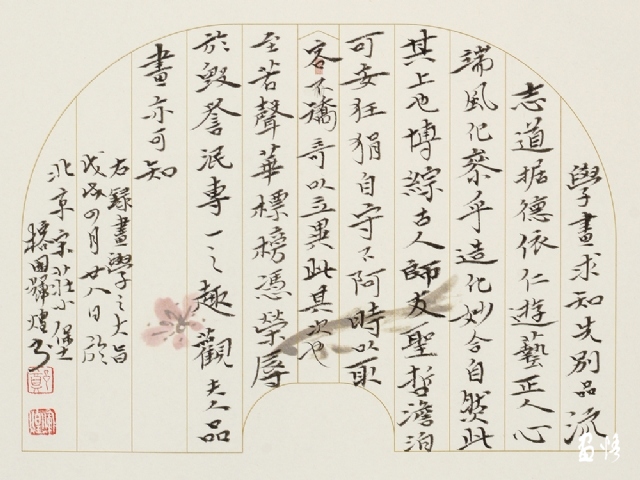 學畫求知先別品流
志道據德依仁遊藝正人心
端風化參乎造化妙合自然此
其上也博綜古人師友聖哲澹泊
可安狂狷自守不阿時以取
容不矯奇以立異此其次也
至若聲華標榜憑榮辱
於毀譽泯專一之趣觀夫人品
畫亦可知
右錄畫學之大旨
戊戌四月廿八日於
北京宋莊